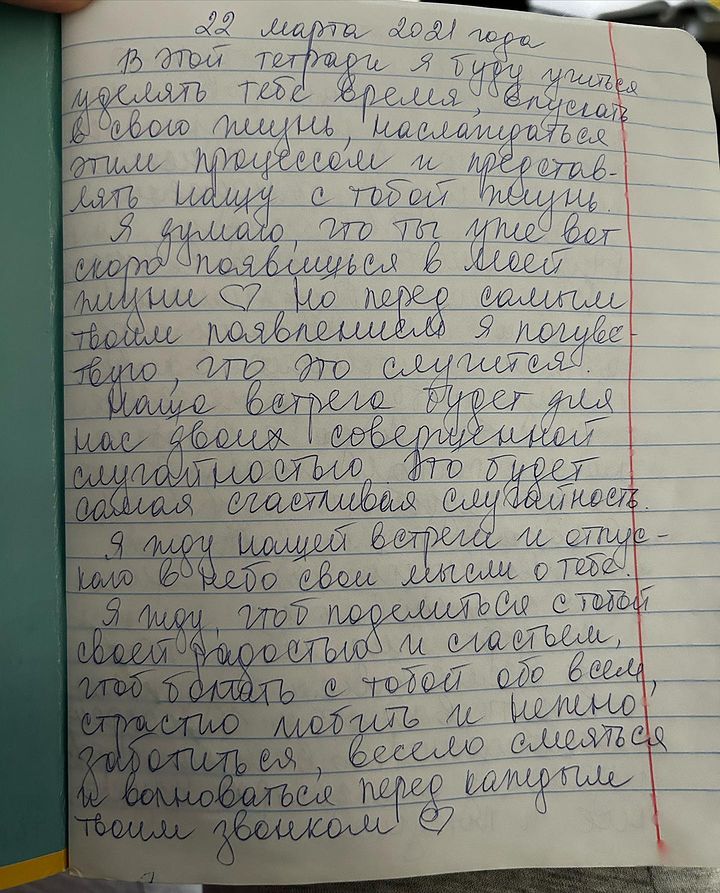 22 марта 2021 года
В этой тетради я буду учиться
уделять тебе время, впускать
в свою жизнь, наслаждаться
этим процессом и представ-
лять нашу с тобой жизнь.
Я думаю, что ты уже вот
скоро появишься в моей
жизни ♡ Но перед самым
твоим появлением я почувс-
твую, что это случится.
Наша встреча будет для
нас двоих совершенной
случайностью. Это будет
самая счастливая случайность.
Я жду нашей встречи и отпус-
каю в небо свои мысли о тебе.
Я жду, чтоб поделиться с тобой
своей радостью и счастьем,
чтоб болтать с тобой обо всем,
страстно любить и нежно
заботиться, весело смеяться
и волноваться перед каждым
твоим звонком ♡